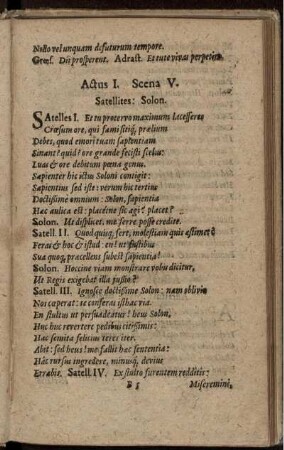 Nullo vel unquam defuturum tempore.
Cræs. Dii prosperent. Adrast. Et tu te vivas perpetim.
Actus I. Scena V.
Satellites: Solon.
SAtelles I. Et tu protervo maximum lacesseres
Cræsum ore, qui fami sitiq́, prælium
Debes, quod emori tuam sapientiam
Sinant? quid? ore grande fecisti scelus:
Luas & ore debitum pœna genus.
Sapienter hic ictus Soloni contigit:
Sapientius sed iste: verum hic tertius
Doctissime omnium: Solon, sapientia
Hæc aulica est: placetne sic agi? placet?
Solon. Mi displicet, me ferre posse credite.
Satell. II. Quod quiq́, fert, molestiam quis æstimet?
Feras & hoc & istud: en! ut fustibus
Sua quoq́, præcellens subest sapientia!
Solon. Hoccine viam monstrare vobis dicitur,
Ut Regis exigebat illa jussio?
Satell. III. Ignosce doctissime Solon: nam oblivio
Nos ceperat: te conferas isthac via.
En stultus ut persuadeatur! heus Solon,
Huc huc revertere pedibus citissimis:
Hac semita felicius teres iter.
Abit: sed heus! me fallit hæc sententia:
Hàc rursus ingredere, minusq́, devius
Errabis. Satell. IV. Ex stulto furentem redditis:
B 5 Miseremini,